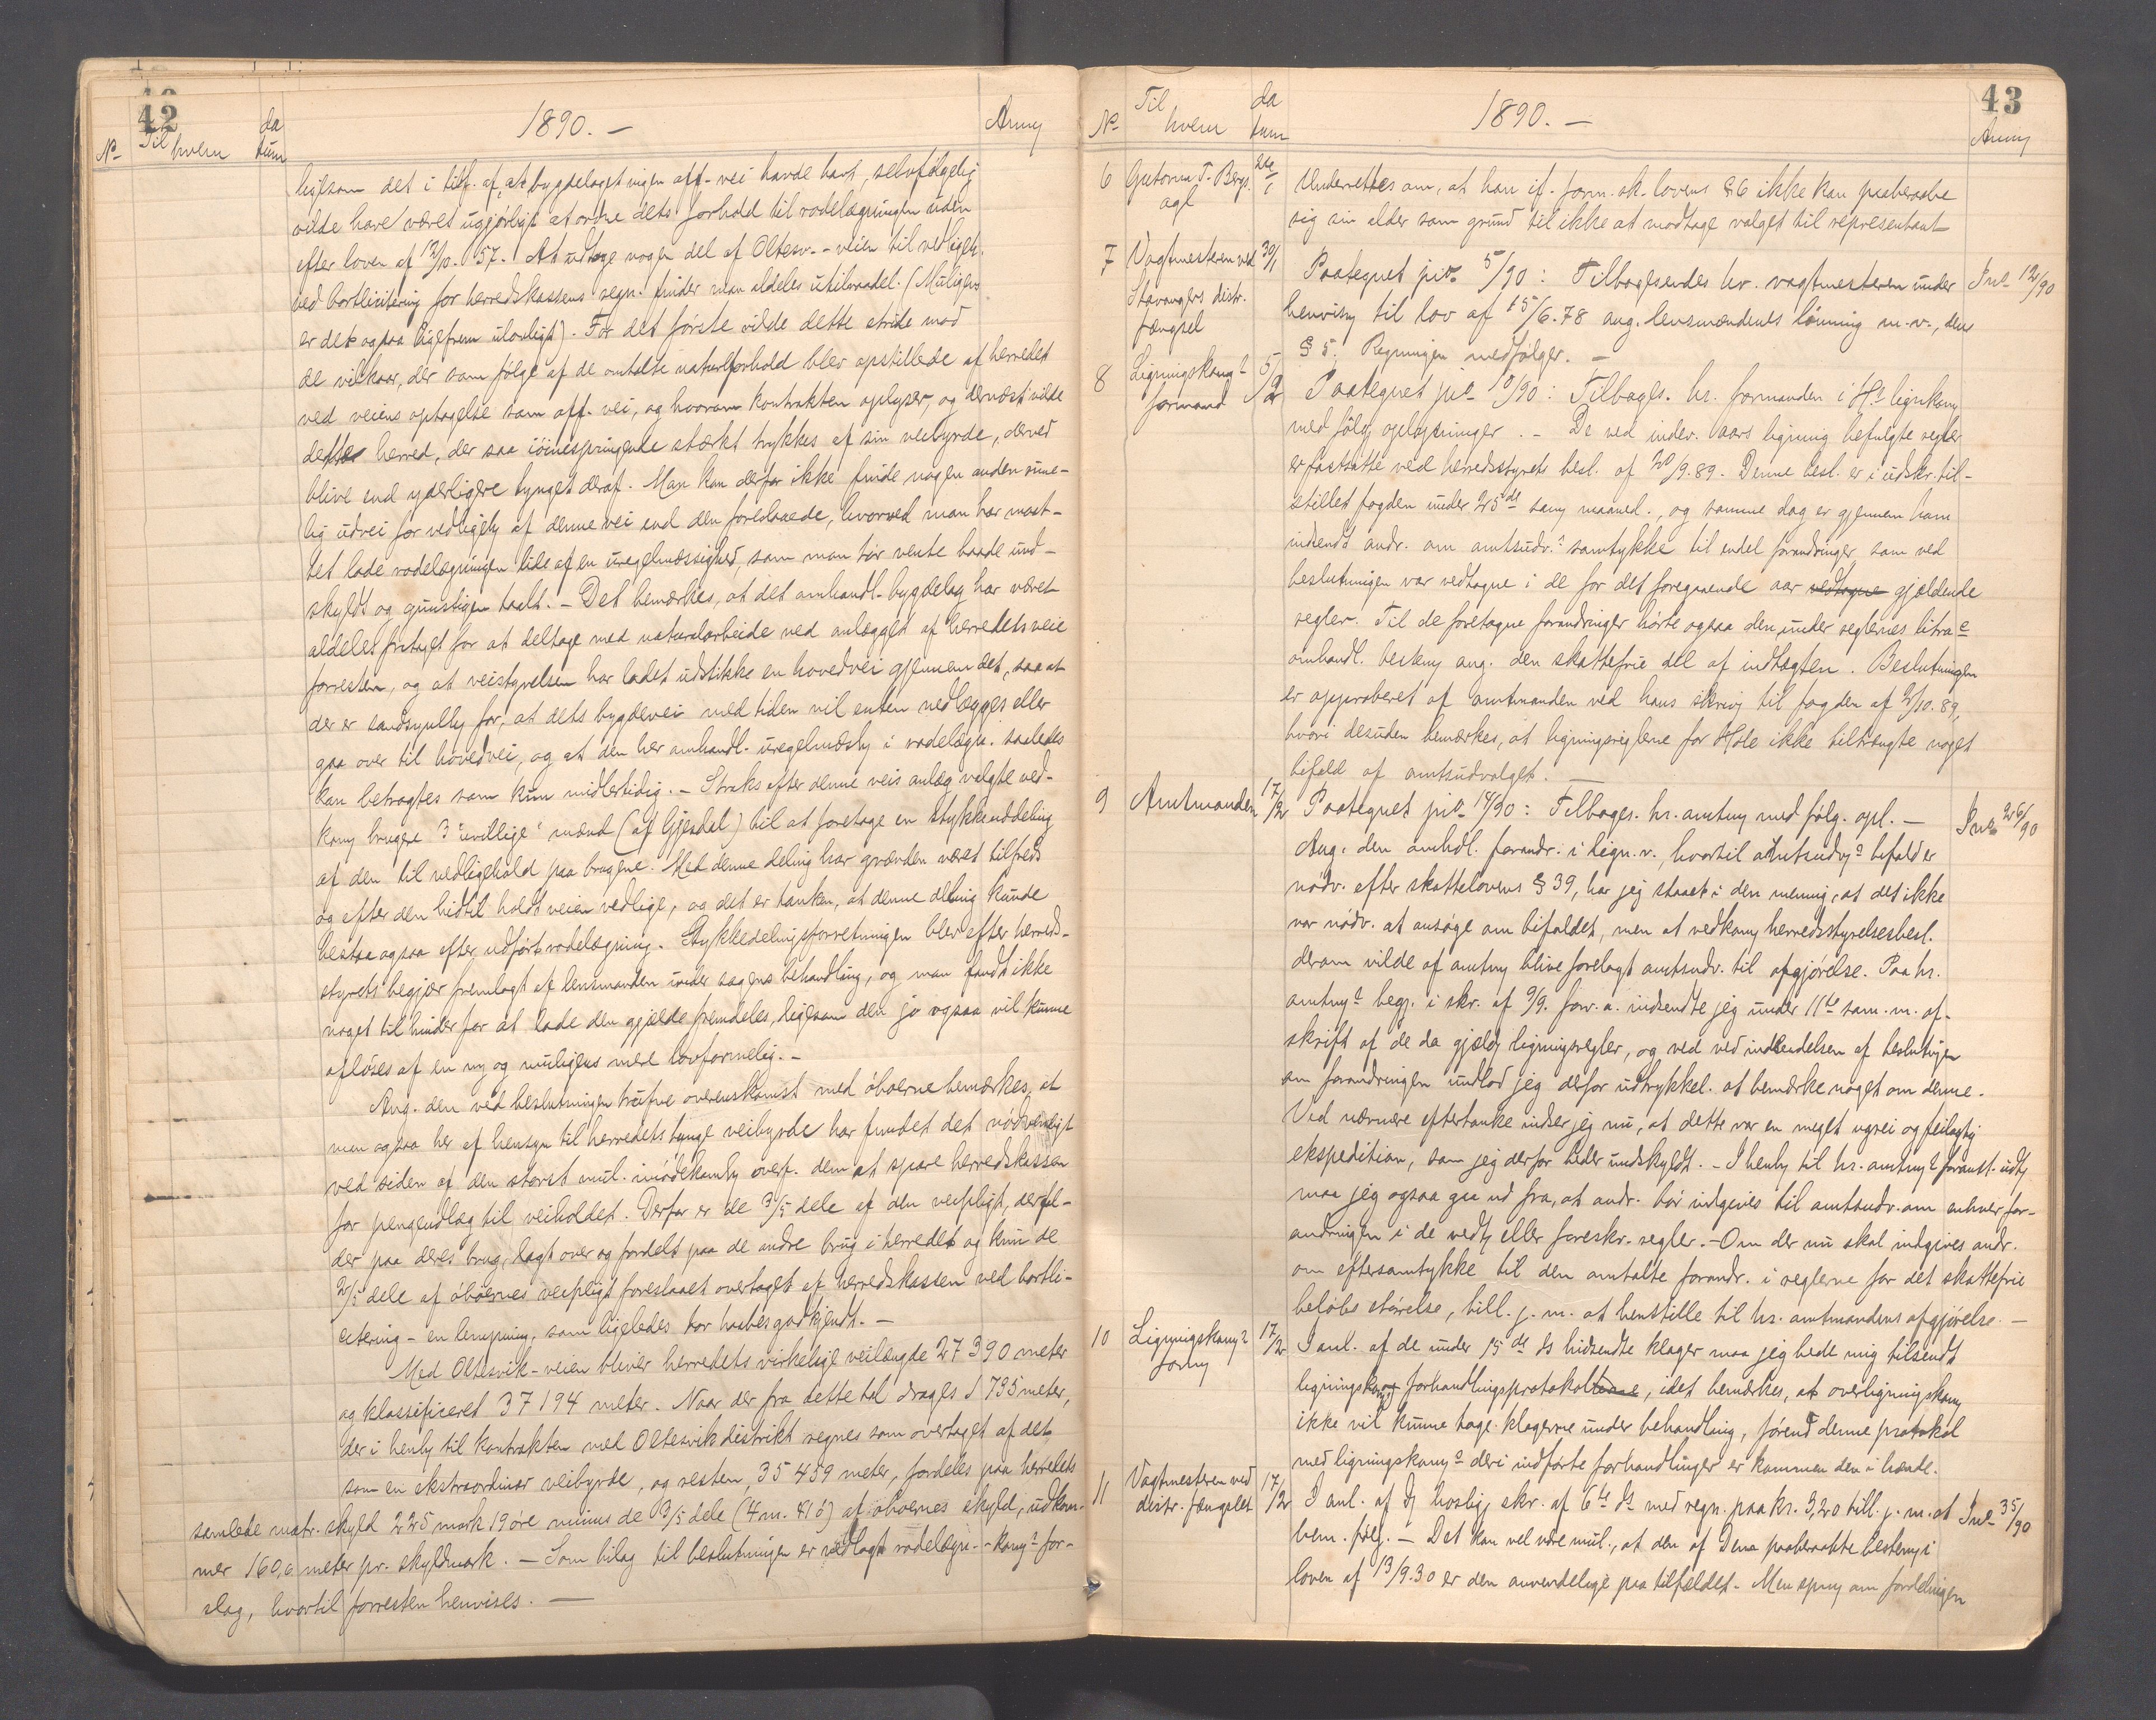 42
No Til hvem da tum 1890. — Anm
ligesom det i tilf. af, at bygdelaget ingen off. vei havde havt, selvfølgelig
vilde have været ugjørligt at ordne dets forhold til rodelægningen uden
efter loven af 12/10. 57. At udtage nogen del af Oltesv.-veien til vedligeh.
ved bortlicitering for herredskassens regn. finder man aldeles utilraadel. (Muligens
er det ogsaa ligefrem ulovligt). For det første vilde dette stride mod
de vilkaar, der som følge af de omtalte naturforhold blev opstillede af herredet
ved veiens optagelse som off. vei, og hvorom kontrakten oplyser, og dernæst vilde
dette herred, der saa iøinespringende stærkt trykkes af sin veibyrde, derved
blive end yderligere tynget deraf. Man kan derfor ikke finde nogen anden rime-
lig udvei for vedligeh. af denne vei end den foreslaaede, hvorved man har maat-
tet lade rodelægningen lide af en uregelmæssighed, som man tør vente baade und-
skyldt og gunstigen taalt. — Det bemærkes, at det omhandl. bygdelag har været
aldeles fritaget for at deltage med naturalarbeide ved anlægget af herredets veie
forresten, og at veistyrelsen har ladet udstikke en hovedvei gjennem det, saa at
der er sandsynlighed for, at dets bygdevei med tiden vil enten nedlægges eller
gaa over til hovedvei, og at den her omhandl. uregelmæsh. i rodelægn. saaledes
kan betragtes som kun midlertidig. — Straks efter denne veis anlæg valgte ved-
kom brugere 3 "uvillige" mænd (af Gjesdal) til at foretage en stykkeuddeling
af den til vedligehold paa brugene. Med denne deling har grænden været tilfreds
og efter den hidtil holdt veien vedlige, og det er tanken, at denne deling kunde
bestaa ogsaa efter udført rodelægning. Stykkedelingsforretningen blev efter herreds-
styrets begjær fremlagt af lensmanden under sagens behandling, og man fandt ikke
noget til hinder for at lade den gjælde fremdeles, ligesom den jo ogsaa vil kunne
afløses af en ny og muligens mere lovformelig. —
Ang. den ved beslutningen trufne overenskomst med øboerne bemærkes, at
man ogsaa her af hensyn til herredets tunge veibyrde har fundet det nødvendigt
ved siden af den størst mul. imødekomh. overf. dem at spare herredskassen
for pengeudlæg til veiholdet. Derfor er de 3/5 dele af den veipligt, der fal-
der paa deres brug, lagt over og fordelt paa de andre brug i herredet og kun de
2/5 dele af øboernes veipligt foreslaaet overtaget af herredskassen ved bortli-
citering — en lempning, som ligeledes tør haabes godkjendt. —
Med Oltesvik-veien bliver herredets virkelige veilængde 27 390 meter
og klassificeret 37 194 meter. Naar der fra dette tal drages 1 735 meter,
der i henh. til kontrakten med Oltesvik distrikt regnes som overtaget af det
som en ekstraordinær veibyrde, og resten, 35 459 meter, fordeles paa herredets
samlede matr. skyld 225 mark 19 øre minus de 3/5 dele (4 m. 41 ø) af øboernes skyld, udkom-
mer 160,6 meter pr. skyldmark. — Som bilag til beslutningen er vedlagt rodelægn.-koms for-
slag, hvortil forresten henvises. —
43
No Til hvem da tum 1890. — Anm
6 Guttorm T. Bergs agl 24/1 Underrettes om, at han if. form. sk. lovens § 6 ikke kan paaberaabe
sig sin alder som grund til ikke at modtage valget til representant
7 Vagtmesteren ved Stavangers distr. fængsel 30/1 Paategnet jno 5/90: Tilbagesendes hr. vagtmesteren under Jno 12/90
henvisn. til lov af 15/6. 78 ang. lensmændenes lønning m. v., dens
§ 5. Regningen medfølger. —
8 Ligningskoms formand 5/2 Paategnet jno 10/90: Tilbages. hr. formanden i Hs lignkom
med følg oplysninger. — De ved indev. aars ligning befulgte regler
er fastsatte ved herredsstyrets besl. af 20/9. 89. Denne besl. er i udskr. til-
stillet fogden under 25de samme maaned., og samme dag er gjennem ham
indsendt andr. om amtsudv.s samtykke til endel forandringer som ved
beslutningen var vedtagne i de for det foregaaende aar vedtagne gjældende
regler. Til de foretagne forandringer hørte ogsaa den under reglernes litra c
omhandl. bestem ang. den skattefrie del af indtægten. Beslutningen
er approberet af amtmanden ved hans skriv til fogden af 2/10. 89,
hvori desuden bemærkes, at ligningsreglerne for Høle ikke tiltrængte noget
bifald af amtsudvalget. —
9 Amtmanden 17/2 Paategnet jno 14/90: Tilbages. hr. amtm med følg. opl. — Jno 26/90
Ang. den omhdl. forandr. i lign. r., hvortil amtsudv.s bifald er
nødv. efter skattelovens § 39, har jeg staaet i den mening, at det ikke
var nødv. at ansøge om bifaldet, men at vedkom herredsstyrelsesbesl.
derom vilde af amtm blive forelagt amtsudv. til afgjørelse. Paa hr.
amtms begj. i skr. af 9/9. forr. a. indsendte jeg under 11te sam. m. af-
skrift af de da gjæld ligningsregler, og ved ved indsendelsen af beslutnin
om forandringen undlod jeg derfor udtrykkel. at bemærke noget om denne.
Ved nærmere eftertanke indser jeg nu, at dette var en meget ugrei og feilagtig
ekspedition, som jeg derfor beder undskyldt. — I henh. til hr. amtms foranst. udt
maa jeg ogsaa gaa ud fra, at andr. bør indgives til amtsudv. om enhver for-
andringen i de vedt eller foreskr. regler. — Om der nu skal indgives andr.
om eftersamtykke til den omtalte forandr. i reglerne for det skattefrie
beløbs størrelse, till. j. m. at henstille til hr. amtmandens afgjørelse. —
10 Ligningskoms form 17/2 I anl. af de under 15de ds hidsendte klager maa jeg bede mig tilsendt
ligningskoms forhandlingsprotokol, idet bemærkes, at overligningskom
ikke vil kunne tage klagerne under behandling, førend denne protokol
med ligningskoms deri indførte forhandlinger er kommen den i hænde.
11 Vagtmesteren ved distr. fængslet 17/2 I anl. af hoslig skr. af 6te ds med regn. paa kr. 3,20 till. j. m. at Jno 35/90
bem. følg. — Det kan vel være mul., at den af Dem paaberaabte bestem i
loven af 13/9. 30 er den anvendelige paa tilfældet. Men spm om fordelingen